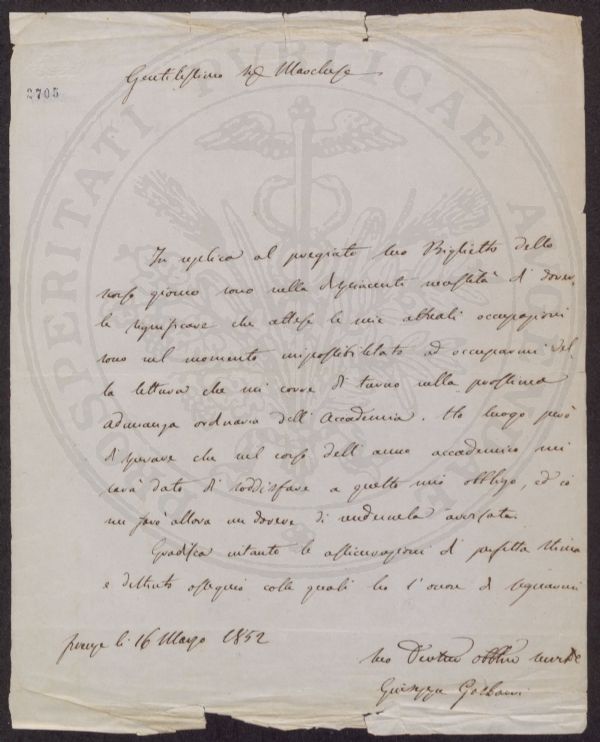 Gentilissimo Sig Marchese
2705
In replica al pregiato suo Biglietto dello
scorso giorno sono nella dispiacente necessità di dover
le significare che attese le mie attuali occupazioni
sono nel momento impossibilitato ad occuparmi del
la lettura che mi corre di turno nella prossima
adunanza ordinaria dell'Accademia. Ho luogo però
di sperare che nel corso dell'anno accademico mi
sarà dato di soddisfare a questo mio obbligo, ed io
mi farò allora un dovere di rendernela avvisata.
Gradisca intanto le assicurazioni di perfetta stima
e distinto ossequio colle quali ho l'onore di segnarmi
Firenze li 16 Marzo 1852
suo Devmo obblmo
Giuseppe
PROSPERITATI PUBLICAE AUGENDAE